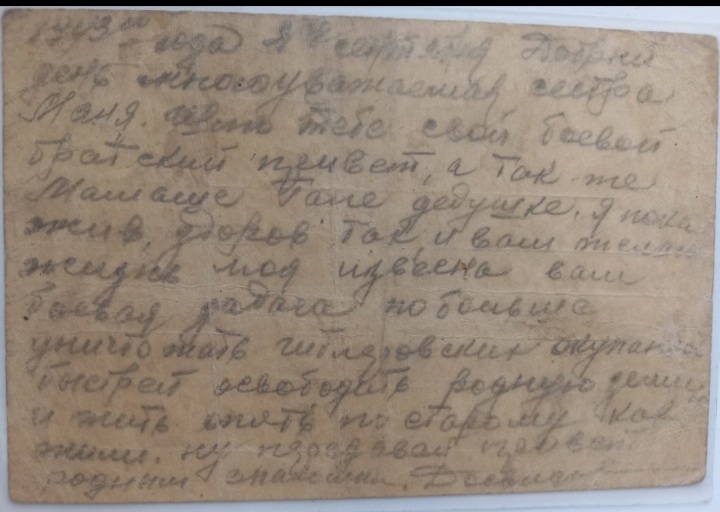 1943 года 1 сентября Добрий
день многоуважаемая сестра
Маня. Шлю тебе свой боевой
братский привет, а так же
Мамаше Гале дедушке. я пока
жив, здоров так и вам желаю
жизнь моя извесна вам
боевая задача побольше
уничтожать гитлеровских окупантов
быстрей освободить родную землю
и жить опять по старому как
жили. ну передавай привет
родным знакомым. Досвид